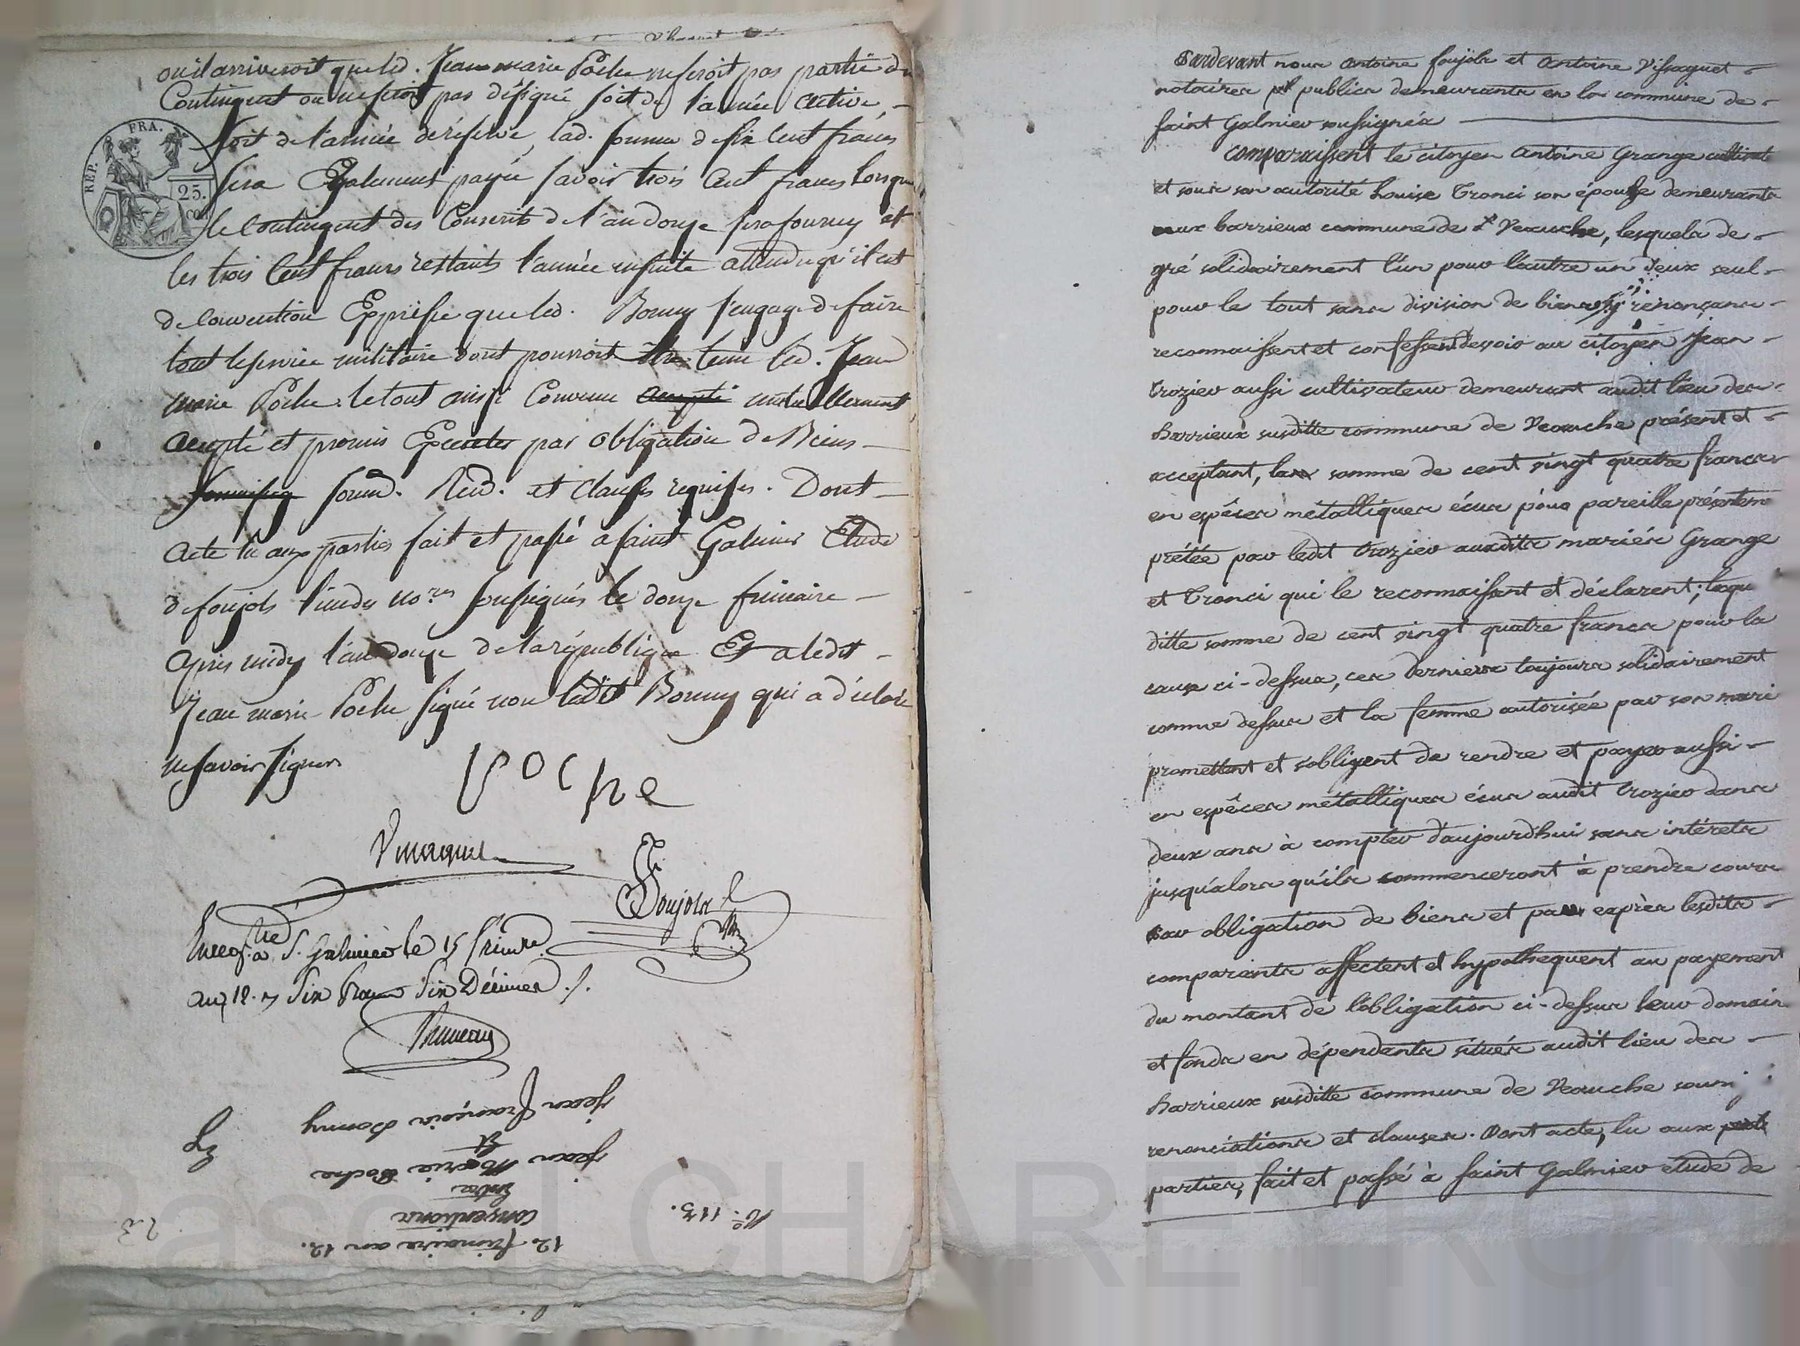 ou il arriveroit que led. Jean marie Poche ne seroit pas partie du
Contingent ou ne seroit pas désigné soit de l'année active,
soit de l'année de réserve, lad. somme de six cent francs
REP. FRA.
25.
sera Egalement payée savoir trois Cent francs lorsque
le Contingent des Conscrits de l'an douze sera fourny et
les trois Cent francs restants l'année ensuite attendu qu'il est
de Convention Expresse que led. Bonny s'engage de faire
tout le service militaire dont pourroit être tenu led. Jean
marie Poche. le tout ainsi Convenu accepté mutuellement
accepté et promis Executer par obligation de Biens
soum. Ren. et clauses requises. Dont
acte lu aux parties fait et passé a saint Galmier Etude
de foujols l'un des no.res soussignés le douze frimaire
après midy l'an douze de la république Et a ledit
Jean marie Poche signé non ledit Bonny qui a déclaré
ne savoir signer
poche
Vissaguet
Foujols
Enreg.tré a S. Galmier le 15 frimre
an 12. Six francs Six Décimes
Bruneau
N.° 113.
12. frimaire an 12.
Conventions
Entre
Jean Marie Poche
Et
Jean François Bonny
23
Pardevant nous Antoine foujols et Antoine Vissaguet
notaires publics demeurants en la commune de
saint Galmier soussignés
Comparaissent le citoyen Antoine Grange cultivate
et sous son autorité Louise Tronci son épouse demeurants
aux barrieux commune de Veauche, lesquels de
gré solidairement l'un pour l'autre un deux seul
pour le tout sans division de biens y renonçans
reconnaissent et confessent devoir au citoyen Jean
Crozier aussi cultivateur demeurant audit lieu des
barrieux susditte commune de Veauche présent et
acceptant, la somme de cent vingt quatre francs
en espêces métalliques écus pour pareille présenteme
prétée par ledit Crozier auxdits mariés Grange
et Tronci qui le reconnaissent et déclarent; laqu
ditte somme de cent vingt quatre francs pour la
cause ci-dessus, ces derniers toujours solidairement
comme dessus et la femme autorisée par son mari
promettent et s'obligent de rendre et payer aussi
en espêces métalliques écus audit Crozier dans
deux ans à compter d'aujourd'hui sans intérets
jusqu'alors qu'ils commenceront à prendre cours
par obligation de biens et par exprès lesdits
comparants affectent et hypothequent au payement
du montant de l'obligation ci-dessus leur domain
et fonds en dépendants situés audit lieu des
barrieux susditte commune de Veauche soum
renonciations et clauses. Dont acte, lu aux
parties, fait et passé à saint Galmier etude de
Pascal CHAREYRON